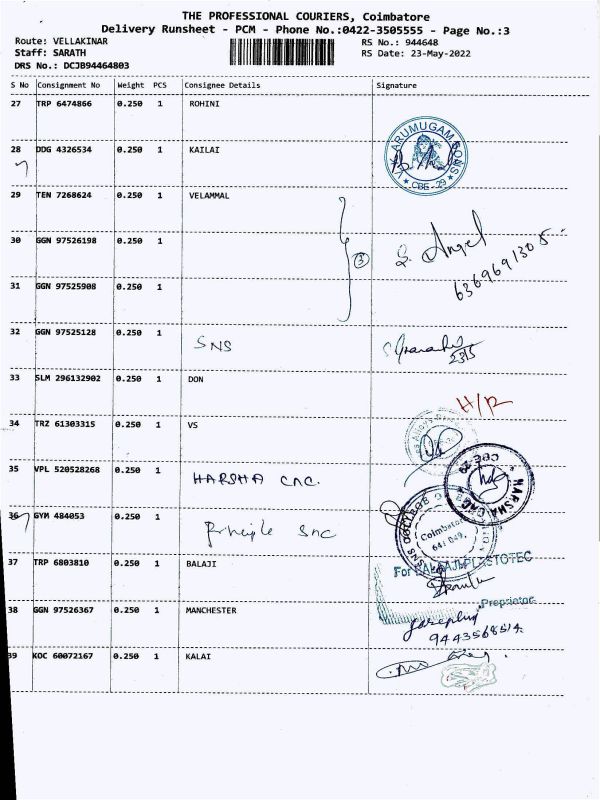 THE PROFESSIONAL COURIERS, Coimbatore
Delivery Runsheet - PCM - Phone No.:0422-3505555 - Page No.:3
Route: VELLAKINAR RS No.: 944648
Staff: SARATH RS Date: 23-May-2022
DRS No.: DCJB94464803
S No Consignment No Weight PCS Consignee Details Signature
27 TRP 6474866 0.250 1 ROHINI
28 DDG 4326534 0.250 1 KAILAI
V.K. ARUMUGAM SONS
CBE-29
29 TEN 7268624 0.250 1 VELAMMAL
30 GGN 97526198 0.250 1
3 S. Angel
6369691305
31 GGN 97525908 0.250 1
32 GGN 97525128 0.250 1 SNS
23/5
33 SLM 296132902 0.250 1 DON
H/R
34 TRZ 61303315 0.250 1 VS
35 VPL 520528268 0.250 1 HARSHA CNC.
HARSHA CNC
CBE 29
36 GYM 484053 0.250 1 Principle SNC
SNS COLLEGE O
Coimbatore
641 049.
37 TRP 6803810 0.250 1 BALAJI
For BALAAJI PLASTOTEC
Proprietor
38 GGN 97526367 0.250 1 MANCHESTER
9443568514
39 KOC 60072167 0.250 1 KALAI